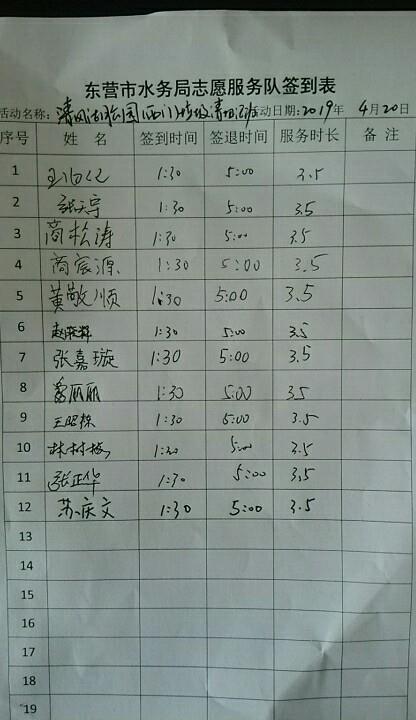 东营市水务局志愿服务队签到表
活动名称: 清风湖公园西门垃圾清 活动日期: 2019年 4月20日
序号 姓 名 签到时间 签退时间 服务时长 备 注
1 1:30 5:00 3.5
2 张天宇 1:30 5:00 3.5
3 商松涛 1:30 5:00 3.5
4 商宸源 1:30 5:00 3.5
5 黄敬顺 1:30 5:00 3.5
6 1:30 5:00 3.5
7 张嘉璇 1:30 5:00 3.5
8 丽丽 1:30 5:00 3.5
9 王昭栋 1:30 5:00 3.5
10 1:30 5:00 3.5
11 张正华 1:30 5:00 3.5
12 苏庆文 1:30 5:00 3.5
13
14
15
16
17
18
19